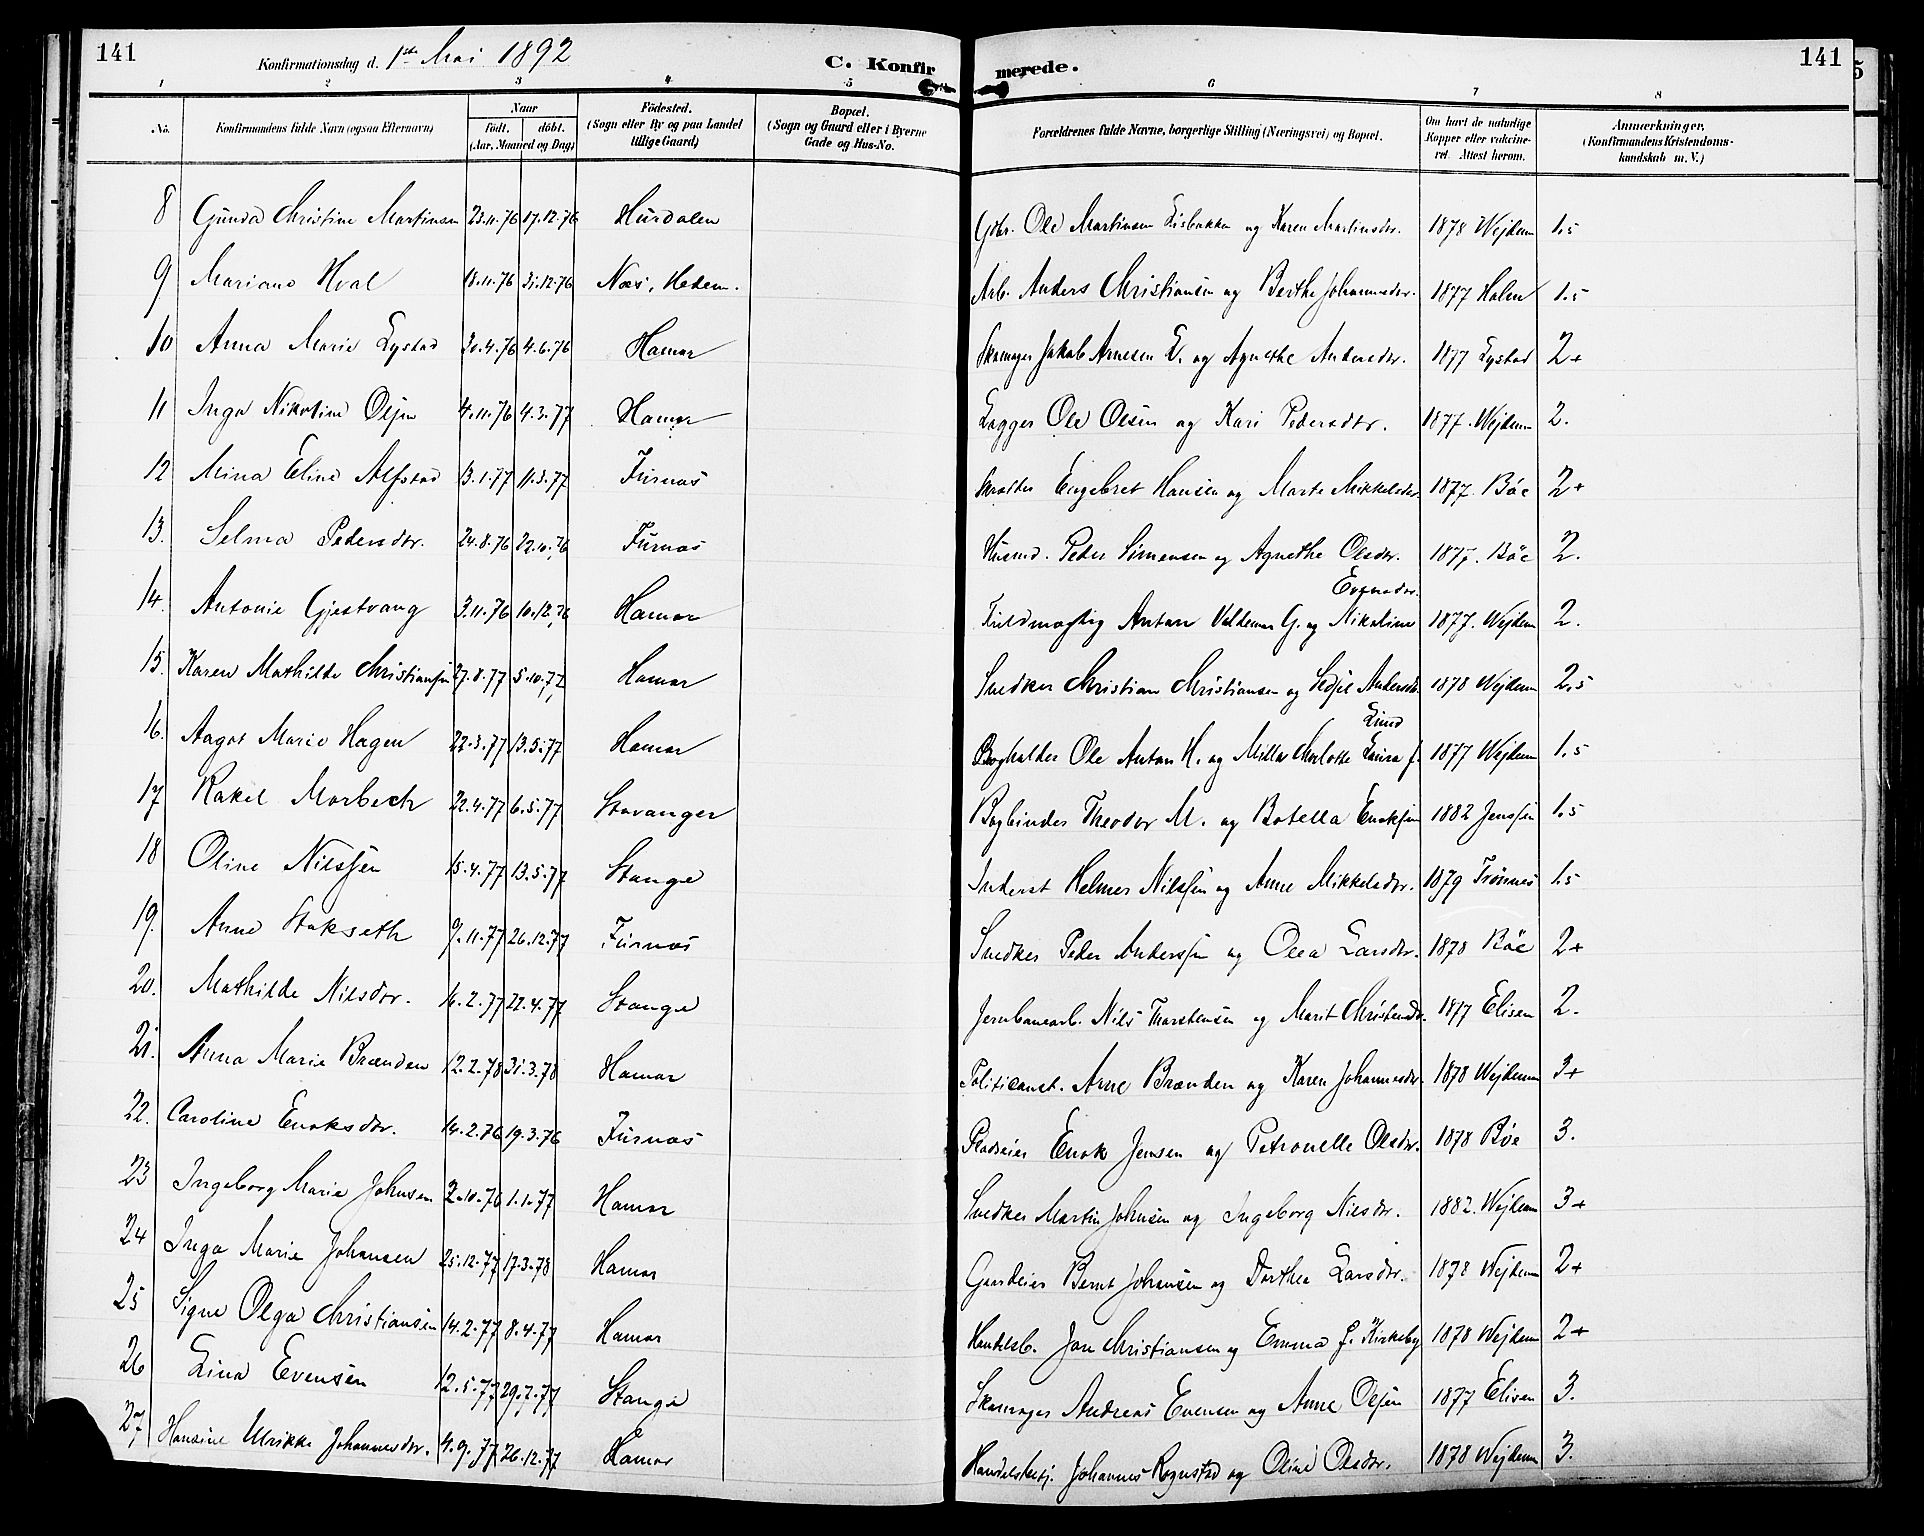 141
Konfirmationsdag d. 1ste Mai 1892
C. Konfirmerede.
141
1 2 3 4 5 6 7 8
No. Konfirmandens fulde Navn (ogsaa Efternavn) Naar født. døbt. (Aar, Maaned og Dag) Fødested. (Sogn eller By og paa Landet tillige Gaard) Bopæl. (Sogn og Gaard eller i Byerne Gade og Hus-No. Forældrenes fulde Navne, borgerlige Stilling (Næringsvei) og Bopæl. Om havt de naturlige Kopper eller vakcineret. Attest herom. Anmærkninger. (Konfirmandens Kristendomskundskab m. V.)
8 Gunda Christine Martinsen 23.11.76 17.12.76 Hurdalen Gbr. Ole Martinsen Lisbakken og Karen Martinsdr. 1878 Wejdem 1.5
9 Mariane Hval 18.11.76 31.12.76 Næs, Hedem. Arb. Anders Christiansen og Berthe Johannesdr. 1877 Holm 1.5
10 Anna Marie Lystad 30.4.76 4.6.76 Hamar Skomager Jakob Arnesen L. og Agnethe Andersdr. 1877 Lystad 2+
11 Inga Nikoline Olsen 4.11.76 4.3.77 Hamar Lægger Ole Olsen og Kari Pedersdr. 1877. Wejdem 2.
12 Mina Eline Alfstad 13.1.77 11.3.77 Furnæs Skrædder Engebret Hansen og Marte Mikkelsdr. 1877. Bøe 2+
13. Selma Pedersdr. 24.8.76 22.10.76 Furnæs Husmd. Peder Simensen og Agnethe Olsdr. 1877. Bøe 2.
14. Antonie Gjestvang 3.11.76 10.12.76 Hamar Fuldmægtig Anton Valdemar G. og Nikoline Evensdr. 1877. Wejdem 2.
15. Karen Mathilde Christiansen 27.8.77 5.10.77 Hamar Snedker Christian Christiansen og Sedsel Andersdr. 1878 Wejdem 2.5
16. Aagot Marie Hagen 22.3.77 13.5.77 Hamar Bogholder Ole Anton H. og Milla Charlotte Laura f. Lund 1877 Wejdem 1.5
17 Rakel Morbech 22.4.77 6.5.77 Stavanger Bogbinder Theodor M. og Botella Enoksen 1882 Jenssen 1.5
18 Oline Nilssen 15.4.77 13.5.77 Stange Inderst Helmer Nilssen og Anne Mikkelsdr. 1879 Trønnes 1.5
19. Anne Stakseth 9.11.77 26.12.77 Furnæs Snedker Peder Anderssen og Olea Larsdr. 1878 Bøe 2+
20. Mathilde Nilsdr. 16.2.77 22.4.77 Stange Jernbanearb. Nils Thorstensen og Marit Christensdr. 1877 Elisen 2.
21. Anna Marie Brænden 12.2.78 31.3.78 Hamar Politiconst. Arne Brænden og Karen Johannesdr. 1878 Wejdem 3+
22. Caroline Enoksdr. 14.2.76 19.3.76 Furnæs Pladseier Enok Jensen og Petronelle Olsdr. 1878 Bøe 3.
23 Ingeborg Marie Johnsen 2.10.76 1.1.77 Hamar Snedker Martin Johnsen og Ingeborg Nilsdr. 1882. Wejdem 3+
24 Inga Marie Johansen 25.12.77 17.3.78 Hamar Gaardeier Bernt Johansen og Dorthea Larsdr. 1878 Wejdem 2+
25 Signe Olga Christiansen 14.2.77 8.4.77 Hamar Handelsb. Jon Christiansen og Emma f. Kirkeby 1878 Wejdem 2+
26 Lina Evensen 12.5.77 29.7.77 Stange Skomager Andreas Evensen og Anne Olsen 1877 Elisen 3.
27 Hansine Ulrikke Johannesdr. 4.9.77 26.12.77 Hamar Handelsbetj. Johannes Rognstad og Oline Olsdr. 1878 Wejdem 3.